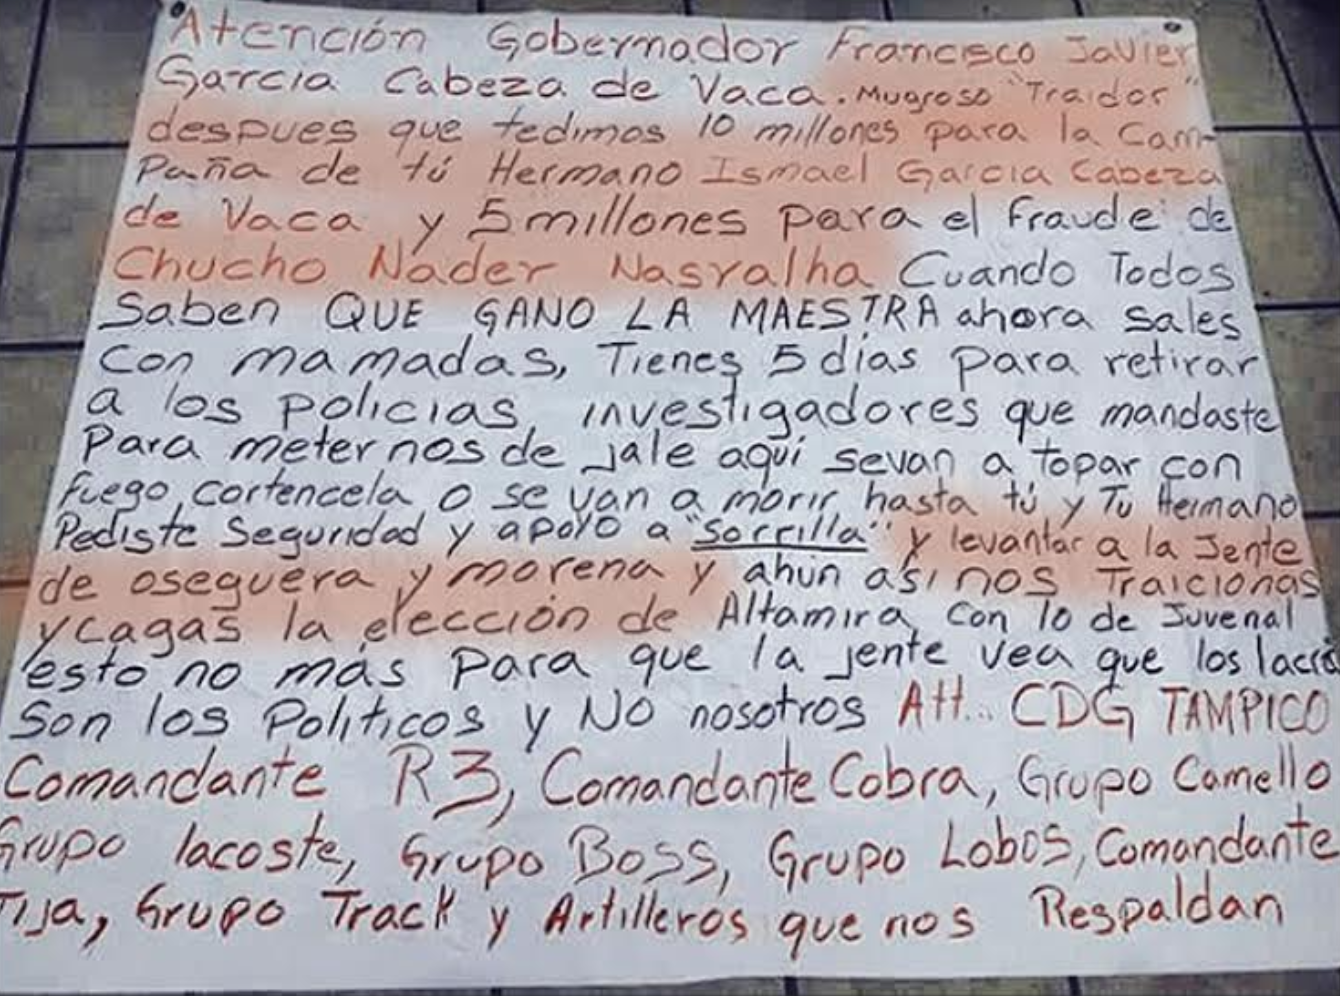 Atención Gobernador Francisco Javier
Garcia Cabeza de Vaca. Mugroso "Traidor"
despues que tedimos 10 millones para la Cam-
Paña de tú Hermano Ismael Garcia Cabeza
de Vaca y 5 millones para el fraude de
Chucho Nader Nasralha Cuando Todos
Saben QUE GANO LA MAESTRA ahora sales
con mamadas, Tienes 5 días para retirar
a los policias investigadores que mandaste
Para meternos de jale aquí sevan a topar con
fuego, cortencela o se van a morir hasta tú y Tu Hermano
Pediste Seguridad y apoyo a "Sorrilla" y levantar a la Jente
de oseguera y morena y ahun asi nos Traicionas
y cagas la elección de Altamira con lo de Juvenal
esto no más para que la jente vea que los lacra
Son los Politicos y No nosotros Att... CDG TAMPICO
Comandante R3, Comandante Cobra, Grupo Camello
Grupo lacoste, Grupo Boss, Grupo Lobos, Comandante
Tija, Grupo Track y Artilleros que nos Respaldan